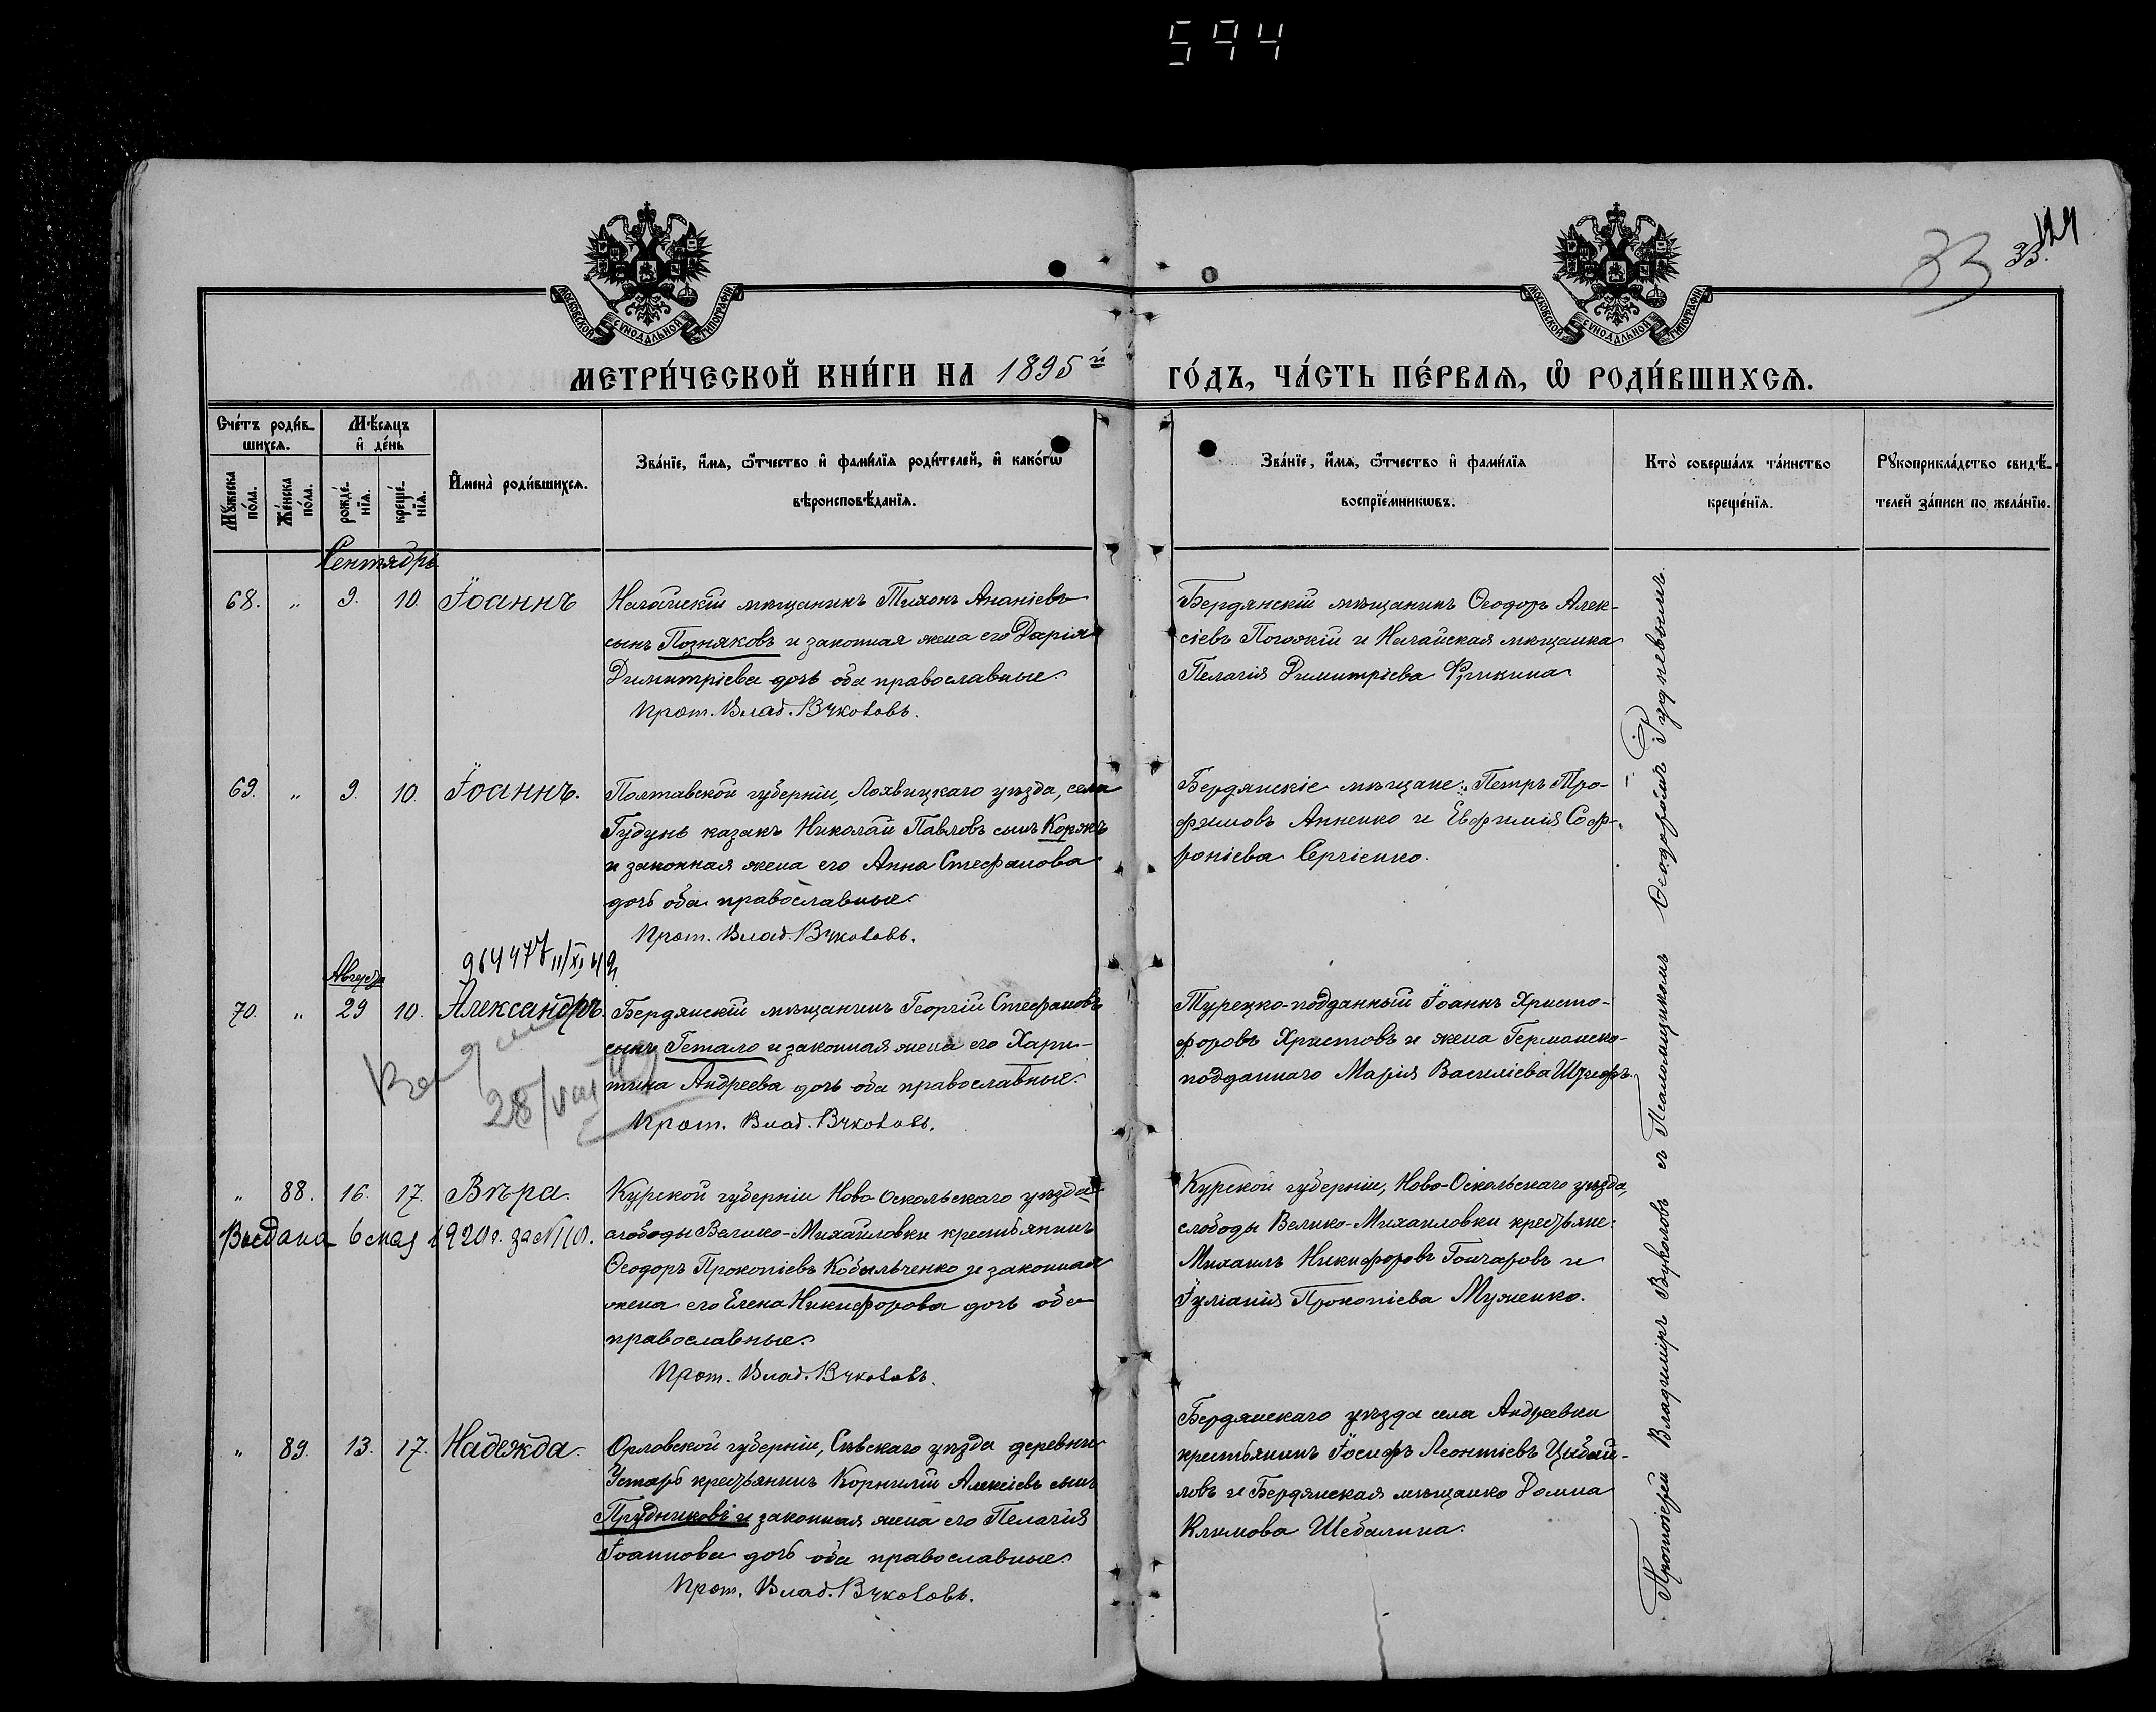 594
33
33.
124
МОСКОВСКОЙ СѴНОДАЛЬНОЙ ТИПОГРАФІИ
МОСКОВСКОЙ СѴНОДАЛЬНОЙ ТИПОГРАФІИ
МЕТРИ́ЧЕСКОЙ КНИ́ГИ НА 1895й ГО́ДЪ, ЧА́СТЬ ПЕ́РВАѦ, Ѡ҆ РОДИ́ВШИХСѦ.
Сче́тъ роди́в-
шихсѧ.
Мꙋ́жеска
по́ла.
Же́нска
по́ла.
Мѣ́сѧцъ
и҆ де́нь
рожде́-
нїѧ.
креще́-
нїѧ.
И҆мена̀ роди́вшихсѧ.
Зва́нїе, и҆́мѧ, ѻ҆́тчество и҆ фами́лїѧ роди́телей, и҆ како́гѡ
вѣроисповѣ́данїѧ.
Зва́нїе, и҆́мѧ, ѻ҆́тчество и҆ фами́лїѧ
воспрїе́мникѡвъ.
Кто̀ соверша́лъ та́инство
креще́нїѧ.
Рꙋкоприкла́дство свидѣ́-
телей за́писи по жела́нїю.
Сентябрь
68. „ 9. 10. Іоаннъ
Ногайскій мѣщанинъ Тихонъ Ананіевъ
сынъ Позняковъ и законная жена его Дарія
Димитріева дочь оба православные.
Прот. Влад. Вуколовъ.
Бердянскій мѣщанинъ Ѳеодоръ Алек-
сіевъ и Ногайская мѣщанка
Пелагія Димитріева
69. „ 9. 10. Іоаннъ.
Полтавской губерніи, Лохвицкаго уѣзда, села
Гудунъ казакъ Николай Павловъ сынъ Корякъ
и законная жена его Анна Стефанова
дочь оба православные.
Прот. Влад. Вуколовъ.
Бердянскіе мѣщане: Петръ Тро-
фимовъ Анненко и Евфимія Соф-
роніева Сергіенко.
964477 11/XI 49
Августа
70. „ 29 10. Александръ.
28/VIII
Бердянскій мѣщанинъ Георгій Стефановъ
сынъ Гетало и законная жена его Хари-
тина Андреева дочь оба православные.
Прот. Влад. Вуколовъ.
Турецко-подданный Іоаннъ Христо-
форовъ Христовъ и жена Германско-
подданнаго Марія Василіева
„ 88. 16. 17. Вѣра.
Выдана 6 мая 1920 г. за №110.
Курской губерніи Ново Оскольскаго уѣзда
слободы Велико-Михайловки крестьянинъ
Ѳеодоръ Прокопіевъ Кобыльченко и законная
жена его Елена Никифорова дочь оба
православные.
Прот. Влад. Вуколовъ.
Курской губерніи, Ново-Оскольскаго уѣзда,
слободы Велико-Михаиловки крестьяне:
Михаилъ Никифоровъ Гончаровъ и
Іуліанія Прокопіева Муженко.
„ 89. 13. 17. Надежда.
Орловской губерніи, Сѣвскаго уѣзда деревни
Устарь крестьянинъ Корнилій Алексіевъ сынъ
Прудниковъ и законная жена его Пелагія
Іоаннова дочь оба православные.
Прот. Влад. Вуколовъ.
Бердянскаго уѣзда села Андреевки
крестьянинъ Іосифъ Леонтіевъ Цыбай-
ловъ и Бердянская мѣщанка Домна
Климова Шебалина.
Протоіерей Владиміръ Вуколовъ съ Псаломщикомъ Ѳеодоромъ Гудневымъ.